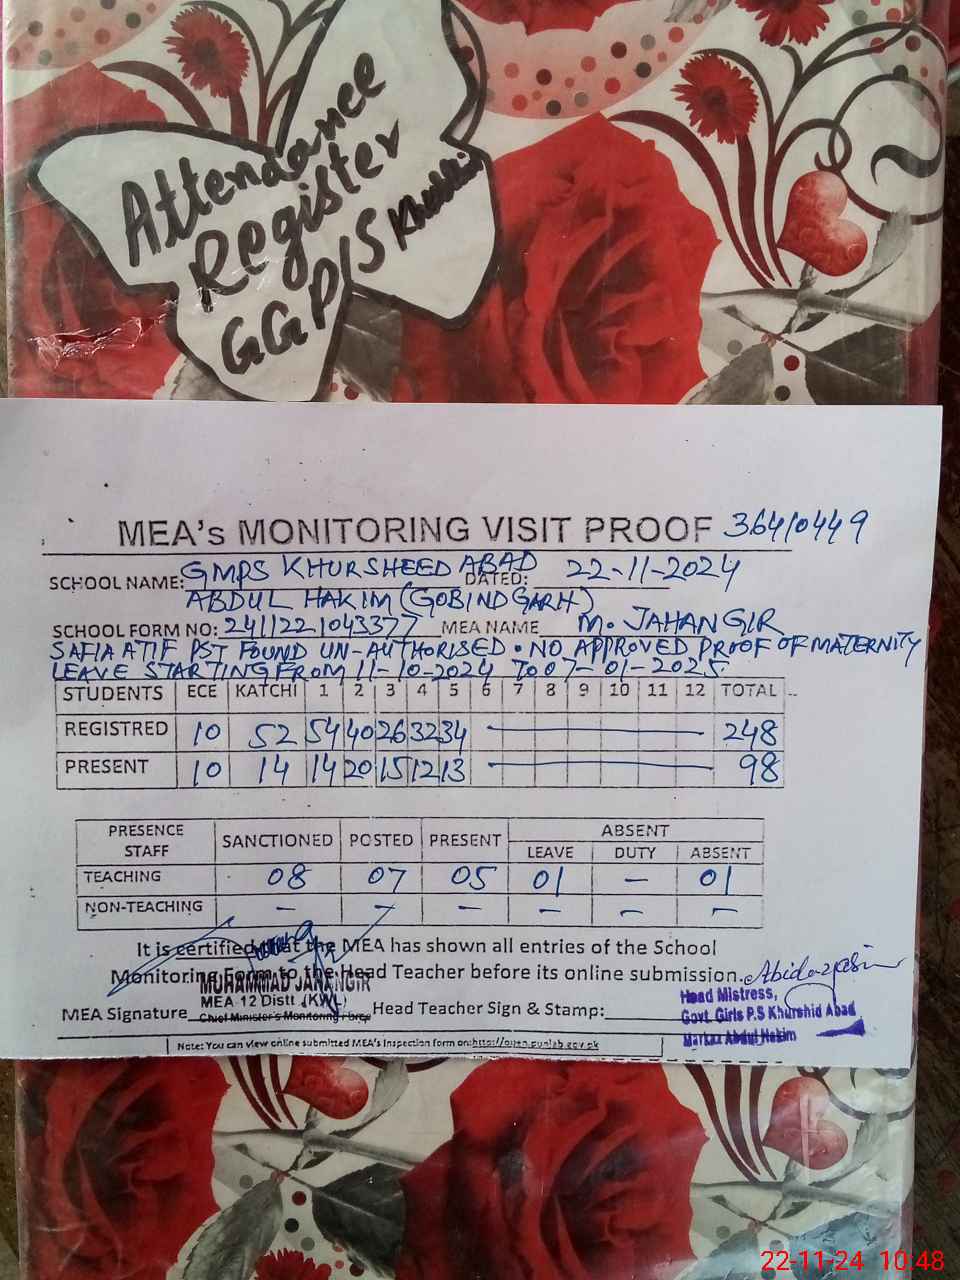 Attendance
Register
GGP/S
MEA's MONITORING VISIT PROOF 36410449
SCHOOL NAME: GMPS KHURSHEED ABAD DATED: 22-11-2024
ABDUL HAKIM (GOBINDGARH)
SCHOOL FORM NO: 2411221043377 MEA NAME M. JAHANGIR
SAFIA ATIF PST FOUND UN-AUTHORISED. NO APPROVED PROOF OF MATERNITY
LEAVE STARTING FROM 11-10-2024 TO 07-01-2025
STUDENTS ECE KATCHI 1 2 3 4 5 6 7 8 9 10 11 12 TOTAL
REGISTRED 10 52 54 40 26 32 34 — 248
PRESENT 10 14 14 20 15 12 13 — 98
PRESENCE STAFF SANCTIONED POSTED PRESENT ABSENT
LEAVE DUTY ABSENT
TEACHING 08 07 05 01 - 01
NON-TEACHING - - - - - -
It is certified that the MEA has shown all entries of the School
Monitoring Form to the Head Teacher before its online submission.
MUHAMMAD JAHANGIR
MEA 12 Distt (KWL)
Chief Minister's Monitoring Force
MEA Signature Head Teacher Sign & Stamp:
Head Mistress,
Govt. Girls P.S Khurshid Abad
Markaz Abdul Hakim
Note: You can view online submitted MEA's Inspection form on: http://open.punjab.gov.pk
22-11-24 10:48